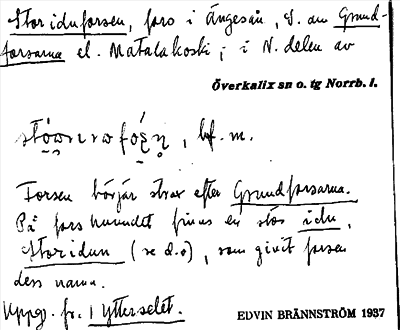 Storiduforsen, fors i Ängesån, S. om Grund-
forsarna el. Matalakoski; i N. delen av
Överkalix sn o. tg Norrb. l.
, bf. m.
Forsen börjar strax efter Grundforsarna.
På forshuvudet finns en stor idu,
Storidun (se d.o), som givit forsen
dess namn.
Uppg. fr. i Ytterselet.
EDVIN BRÄNNSTRÖM 1937